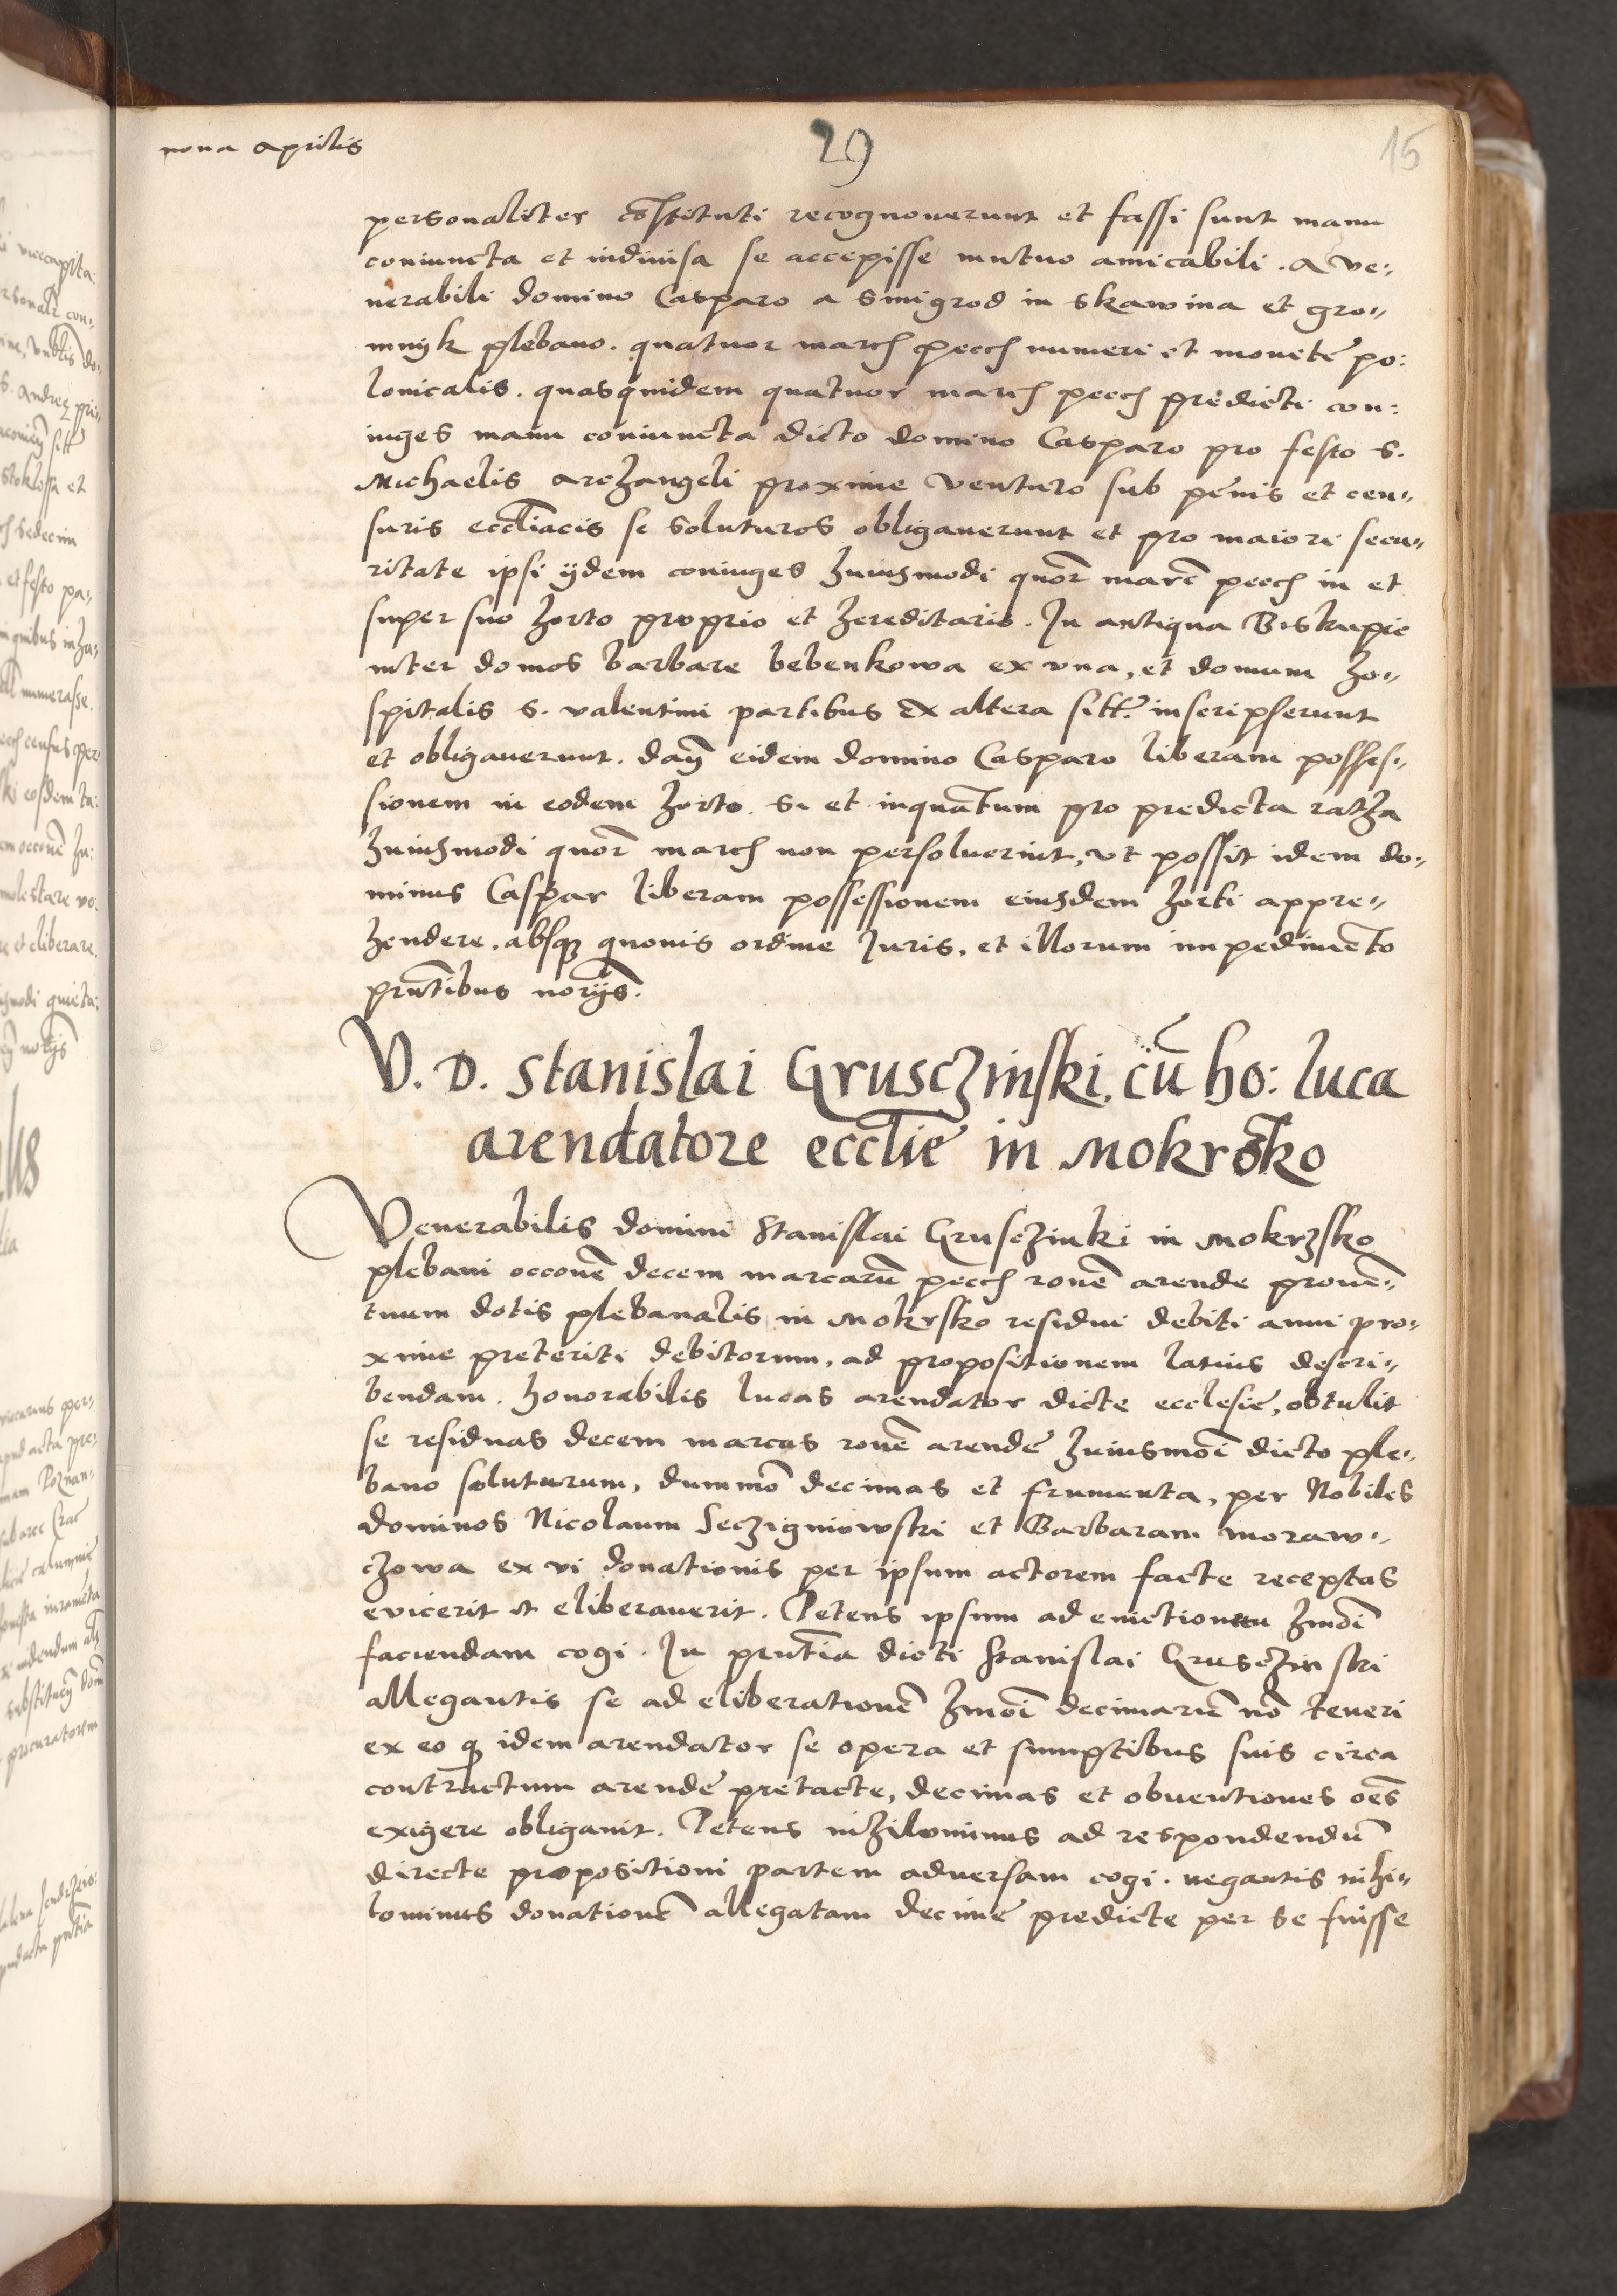 nona aprilis
29
15
personaliter cōstituti recognouerunt et fassi sunt manu
coniuncta et indiuisa se accepisse mutuo amicabili . a ve„
nerabili domino Casparo a smigrod in skawina et gro„
mnyk plebano . quatuor march pecch numeri et monete po:
lonicalis . quasquidem quatuor march pecch predicti con:
iuges manu coniuncta dicto domino Casparo pro festo s.
Michaelis archangeli proxime venturo sub penis et cen„
suris eccliacis se soluturos obligauerunt et pro maiori secu„
ritate ipsi ijdem coniuges huiusmodi quor marc pecch in et
super suo horto proprio et hereditario . In antiqua Biskupie
inter domos barbare bebenkowa ex vna, et domum ho„
spitalis s. valentini partibus ex altera sitt. inscripserunt
et obligauerunt . dan̄ eidem domino Casparo liberam posses„
sionem in eodem horto . Si et inquantum pro predicta ratha
huiusmodi quor march non persoluerint, vt possit idem do„
minus Caspar liberam possessionem eiusdem horti appre„
hendere . absqз quouis ordine Iuris, et illorum impedimēto
prntibus norijs.
V. D. stanislai Grusczinski, cū ho: luca
arendatore ecclie in Mokrsko
Venerabilis domini Stanislai Grusczinki in Mokrzsko
plebani occonē decem marcarū pecch ronē arende prouē„
tuum dotis plebanalis in Mokrsko residui debiti anni pro„
xime preteriti debitorum, ad propositionem latius descri„
bendam . honorabilis lucas arendator dicte ecclesie, obtulit
se residuas decem marcas ronē arende huiusmōi dicto ple„
bano soluturum, dummō decimas et frumenta, per Nobiles
dominos Nicolaum Secзigniowski et Barbaram moraw„
cзowa ex vi donationis per ipsum actorem facte receptas
evicerit et eliberauerit . Petens ipsum ad euictionem hmōi
faciendam cogi . In prntia dicti Stanislai Grusczinski
allegantis se ad eliberationē hmōi decimarū nō teneri
ex eo q idem arendator se opera et sumptibus suis circa
contractum arende pretacte, decimas et obuentiones oēs
exigere obligauit . Petens nihilominus ad respondendū
directe propositioni partem adversam cogi . negantis nihi„
lominus donationē allegatam decime predicte per se fuisse